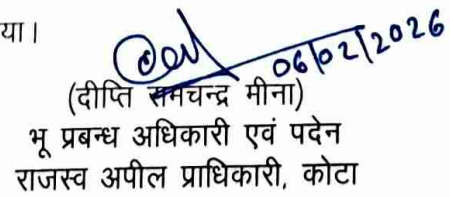 या।
06/02/2026
(दीप्ति रामचन्द्र मीना)
भू प्रबन्ध अधिकारी एवं पदेन
राजस्व अपील प्राधिकारी, कोटा